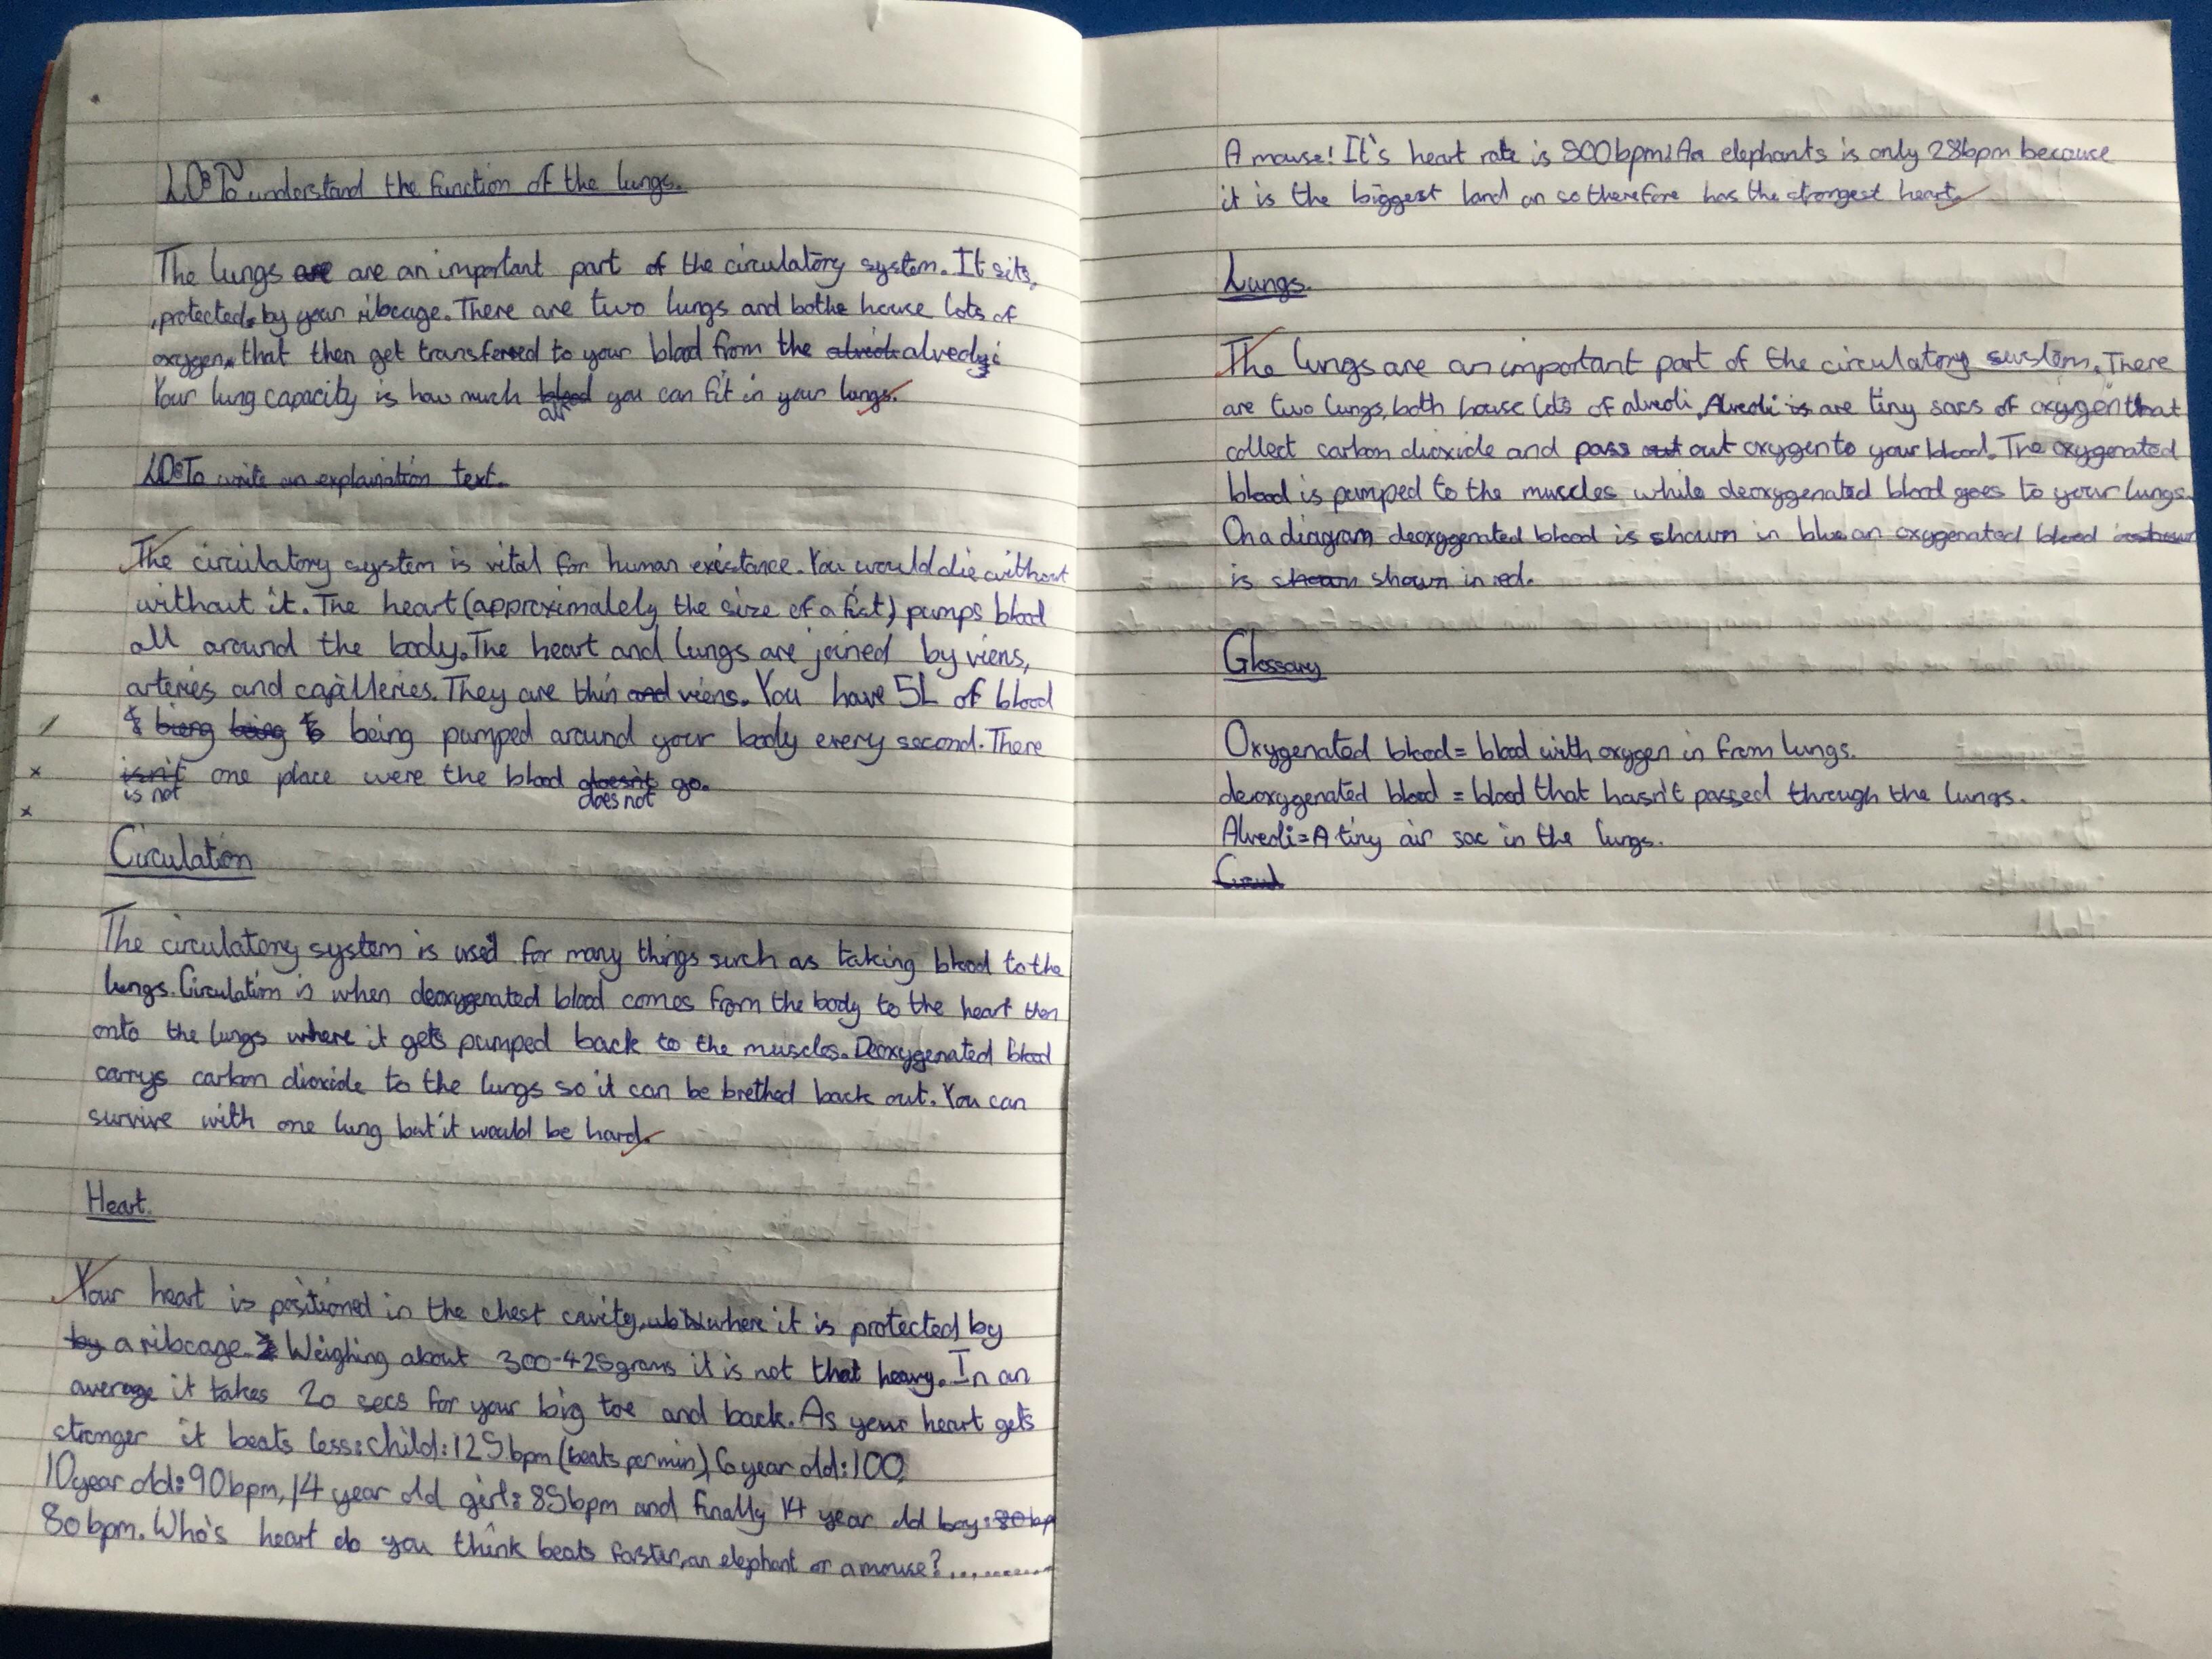 LO: To understand the function of the lungs.
The lungs are are an important part of the circulatory system. It sits,
protected, by your ribcage. There are two lungs and bothe house lots of
oxygen, that then get transfered to your blood from the alveoli
Your lung capacity is how much air you can fit in your lungs.
LO: To write an explaination text.
The circulatory system is vital for human existance. You would die without
without it. The heart (approximately the size of a fist) pumps blood
all around the body. The heart and lungs are joined by viens,
arteries and capilleries. They are thin and viens. You have 5L of blood
bieng being being pumped around your body every second. There
isn't one place were the blood doesn't go.
is not does not
Circulation
The circulatory system is used for many things such as taking blood to the
lungs. Circulation is when deoxygenated blood comes from the body to the heart then
onto the lungs where it gets pumped back to the muscles. Deoxygenated blood
carrys carbon dioxide to the lungs so it can be brethed back out. You can
survive with one lung but it would be hard.
Heart.
Your heart is positioned in the chest cavity, where it is protected by
by a ribcage. Weighing about 300-425grams it is not that heavy. In an
average it takes 20 secs for your big toe and back. As your heart gets
stronger it beats less: child: 125bpm (beats per min), 6 year old: 100,
10 year old: 90bpm, 14 year old girl: 85bpm and finally 14 year old boy: 80bp
80bpm. Who's heart do you think beats faster, an elephant or a mouse?............
A mouse! It's heart rate is 500bpm! An elephants is only 28bpm because
it is the biggest land an so therefore has the strongest heart.
Lungs.
The lungs are an important part of the circulatory system. There
are two lungs, both house lots of alveoli. Alveoli is are tiny sacs of oxygen that
collect carbon dioxide and pass out out oxygen to your blood. The oxygenated
blood is pumped to the muscles while deoxygenated blood goes to your lungs.
On a diagram deoxygenated blood is shown in blue an oxygenated blood
is shown shown in red.
Glossary
Oxygenated blood = blood with oxygen in from lungs.
deroxygenated blood = blood that hasn't passed through the lungs.
Alveoli = A tiny air sac in the lungs.
Circul